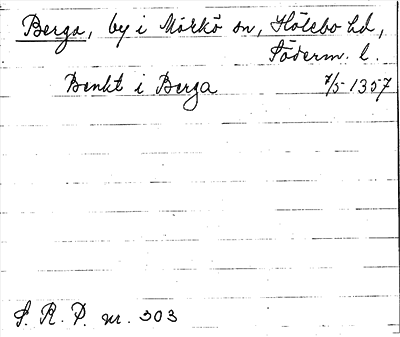 Berga, by i Mörkö sn, Hölebo hd,
Söderm. l.
Benkt i Berga 7/5 1357
S. R. P. nr. 303